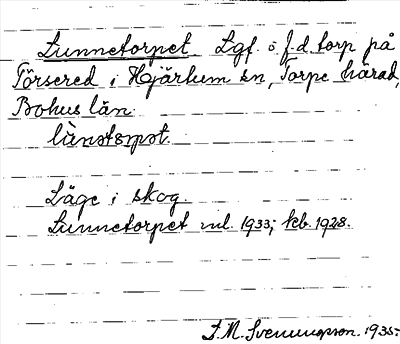 Lunnetorpet. Lgf. o. f.d. torp på
Törsered i Hjärtum sn, Torpe härad,
Bohus län.
Läge i skog.
Lunnetorpet ml. 1933; kb. 1928.
1935.